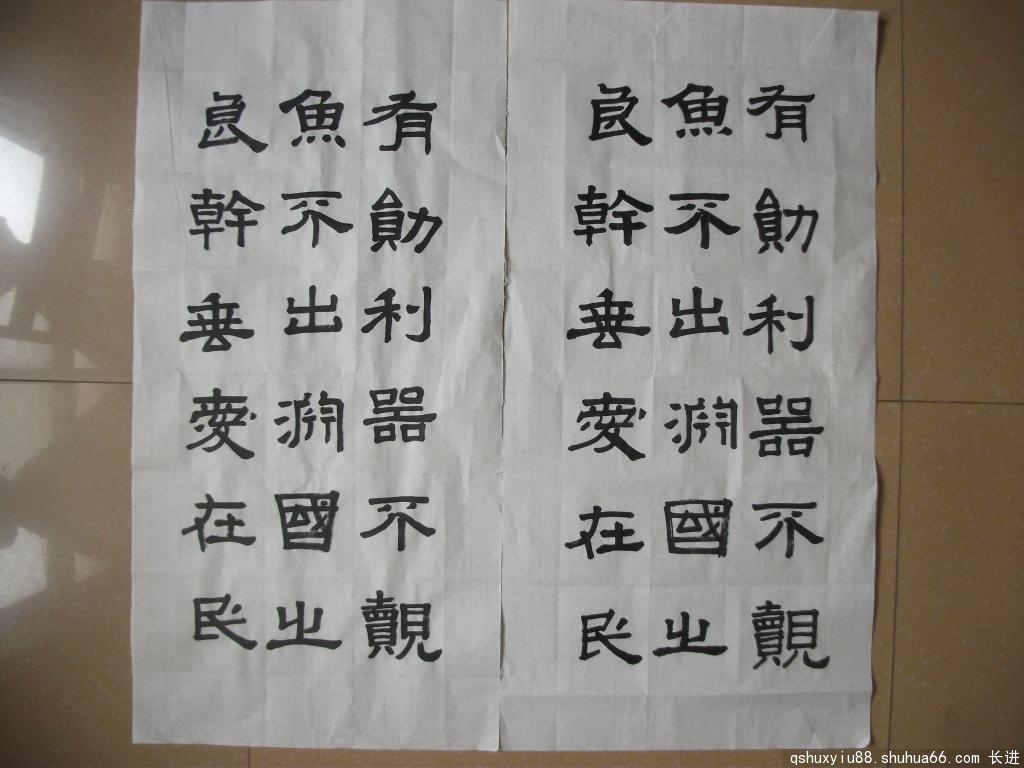 有勛利器不覿
魚不出淵國之
良幹垂愛在民
有勛利器不覿
魚不出淵國之
良幹垂愛在民
qshuxyiu88.shuhua66.com 长进